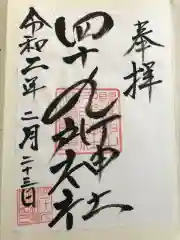 奉拝
四十九所神社
令和二年二月二十三日